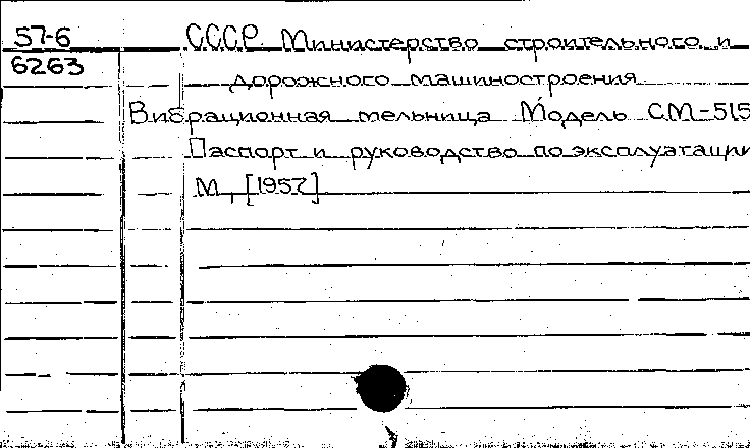 57-6
СССР. Министерство строительного и
6263
дорожного машиностроения.
Вибрационная мельница Модель СМ-515
Паспорт и руководство по эксплуатации
М., [1957]